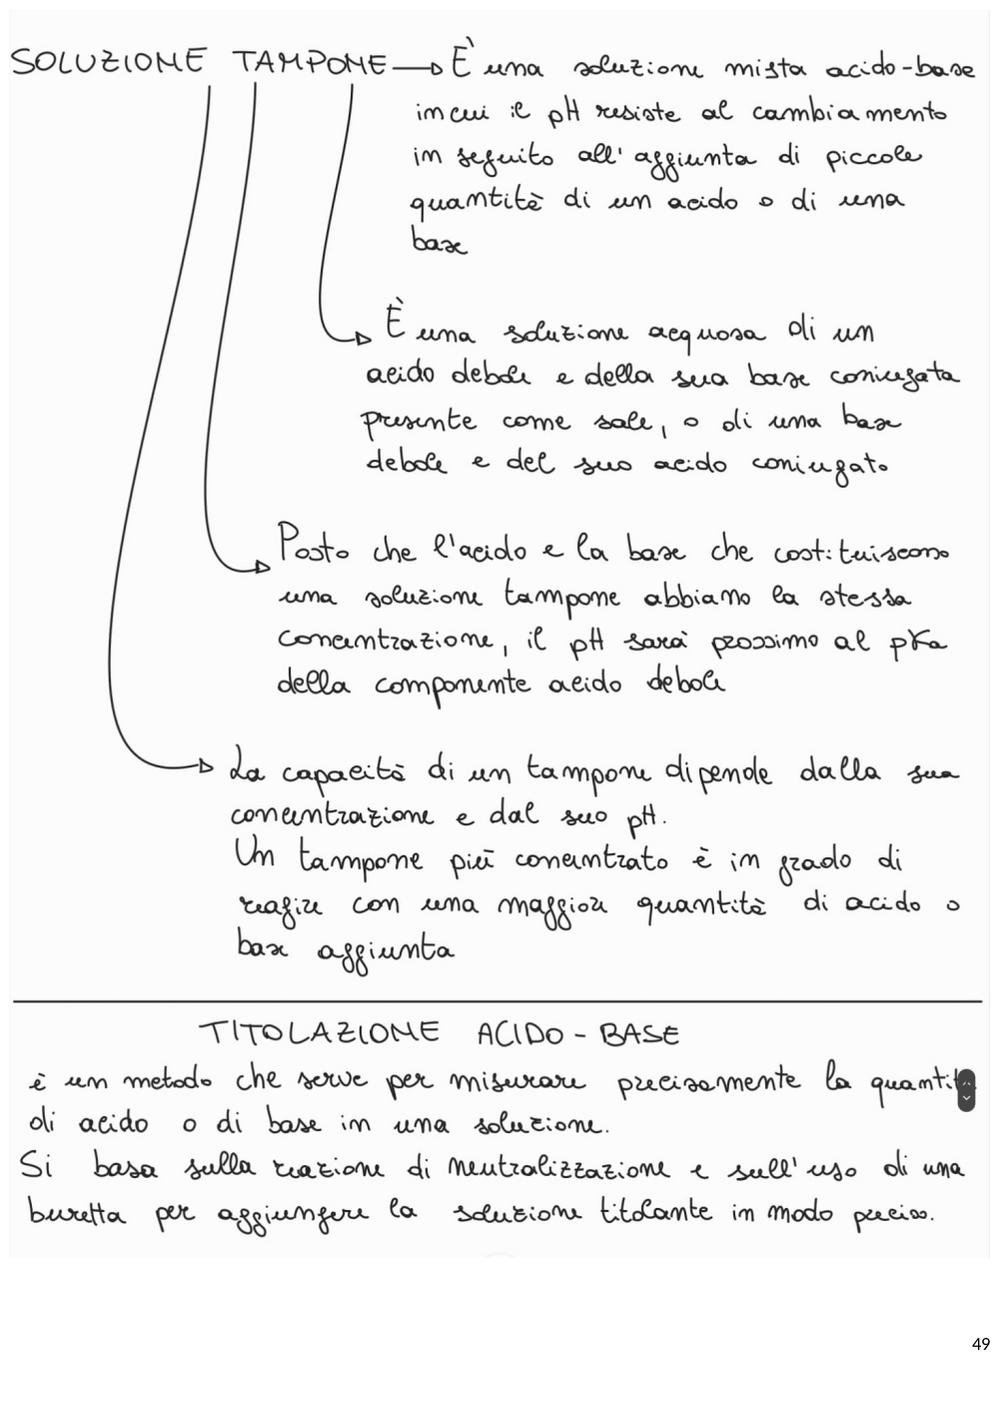 SOLUZIONE TAMPONE → È una soluzione mista acido-base
in cui il pH resiste al cambiamento
in seguito all'aggiunta di piccole
quantità di un acido o di una
base
È una soluzione acquosa di un
acido debole e della sua base coniugata
presente come sale, o di una base
debole e del suo acido coniugato
Posto che l'acido e la base che costituiscono
una soluzione tampone abbiano la stessa
concentrazione, il pH sarà prossimo al pKa
della componente acido debole
La capacità di un tampone dipende dalla sua
concentrazione e dal suo pH.
Un tampone più concentrato è in grado di
reagire con una maggiore quantità di acido o
base aggiunta
TITOLAZIONE ACIDO-BASE
è un metodo che serve per misurare precisamente la quantit
di acido o di base in una soluzione.
Si basa sulla reazione di neutralizzazione e sull'uso di una
buretta per aggiungere la soluzione titolante in modo preciso.
49